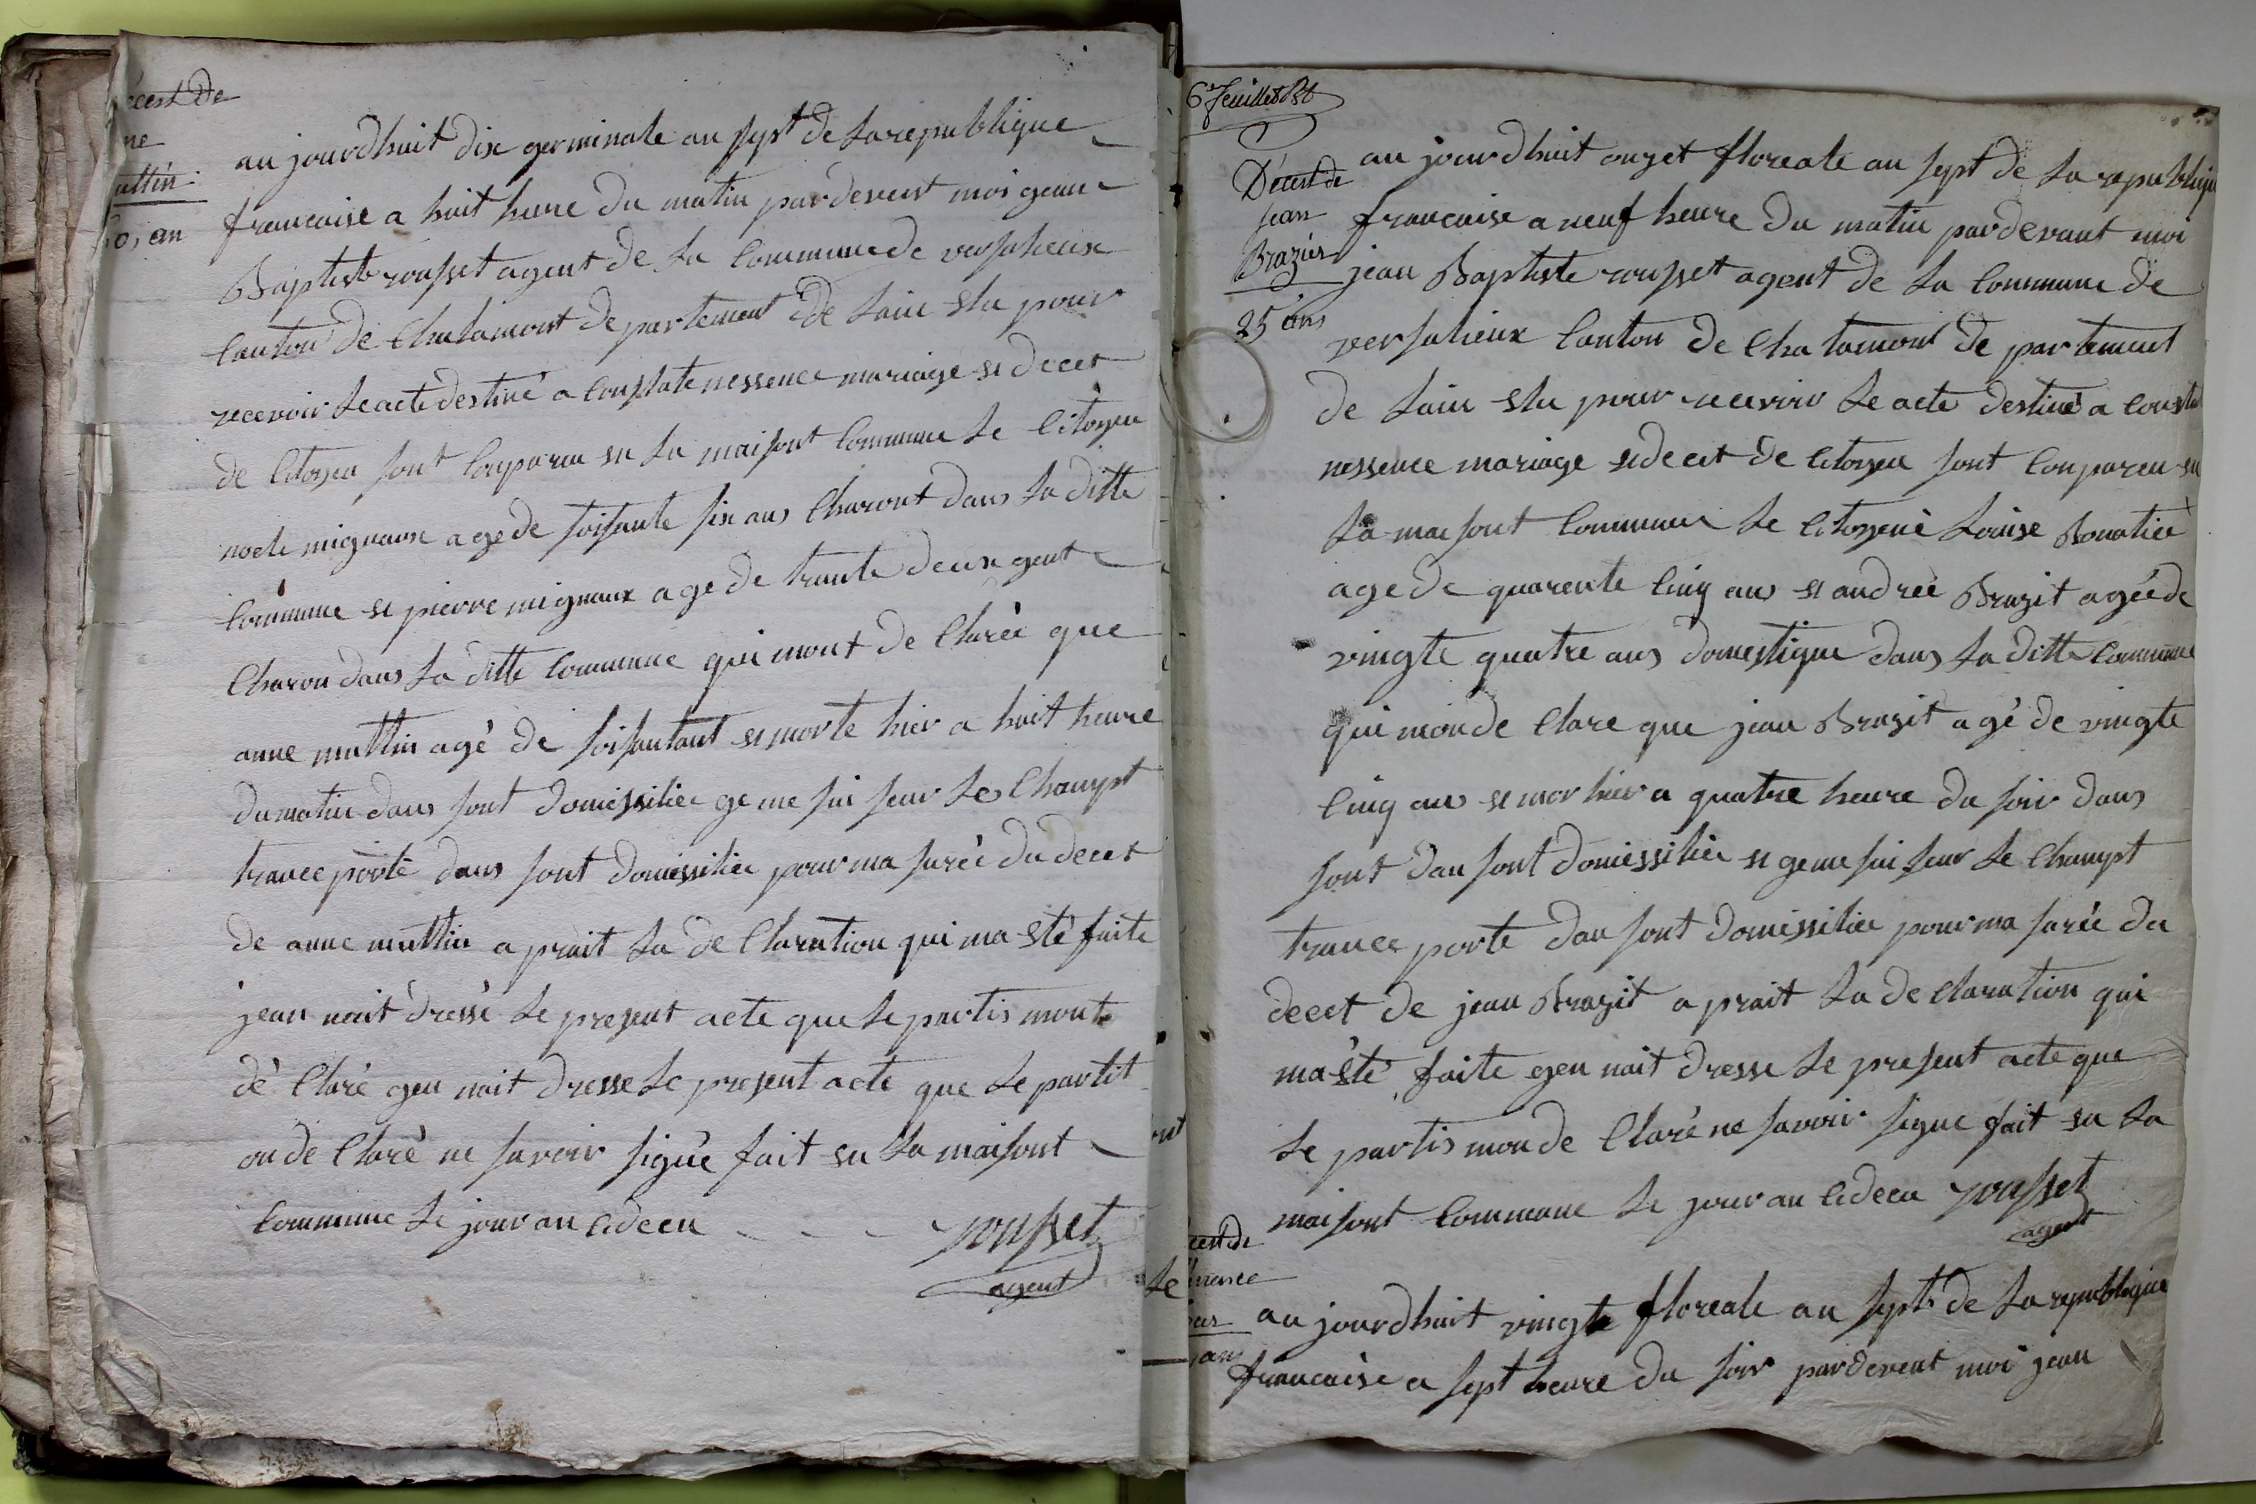 au jourdhuit dix germinale an sept de la republique
francaise a huit heure du matin pardevent moi jean
Baptiste rousset agent de la Commune de versalieux
Canton de Chalamont departement de lain elu pour
recevoir le acte destiné a constate nessence mariage et decet
de Citoyen sont Conparu en la maisont Commune le Citoyen
noele mignaux age de soisante six ans Charont dans la ditte
Commune et pierre mignaux age de trante deux gent
Charon dans la ditte Commune qui mont de Claréé que
anne muttin agé de soisantant et morte hier a huit heure
du matin dans sont domissiliée ge me sui seur le Champt
trance porté dans sont domissiliée pour ma suréé du decet
de anne muttin a prait la de Claration qui ma eté faite
jean nait dressé le present acte que le partis mont
dé Claré gen nait dresse le present acte que le partit
on de Claré ne savoir signé fait en la maisont
Commune le jour an cideçu
rousset
agent
6e feuillet
Décest de
jean
Brazier
25 ans
au jourdhuit onzet floreale an sept de la republique
francaise a neuf heure du matin pardevant moi
jean Baptiste rousset agent de la Commune de
versalieux Canton de Chalamont de partement
de lain elu pour recevoir le acte destiné a
nessence mariage et decet de Citoyen sont Conpareu en
la maisont Commune le Citoyené Louise
age de quarente Cinq ans et andréé Brazit agée de
vingte quatre ans domestique dans la ditte Commune
qui mon de Clare que jean Brazit agé de vingte
Cinq ans et mor hier a quatre heure du soir dans
sont dan sont domissiliée et ge me sui seur le Champt
trance porte dan sont domissiliée pour ma suréé du
decet de jean Brazit a prait la de Claration qui
ma eté faite gen nait dresse le present acte que
le partis mon de Claré ne savoir signe fait en la
maisont Commune le jour an cideçu rousset
agent
au jourdhuit vingte floreale an sept de la republique
francaise a sept heure du soir pardevent moi jean